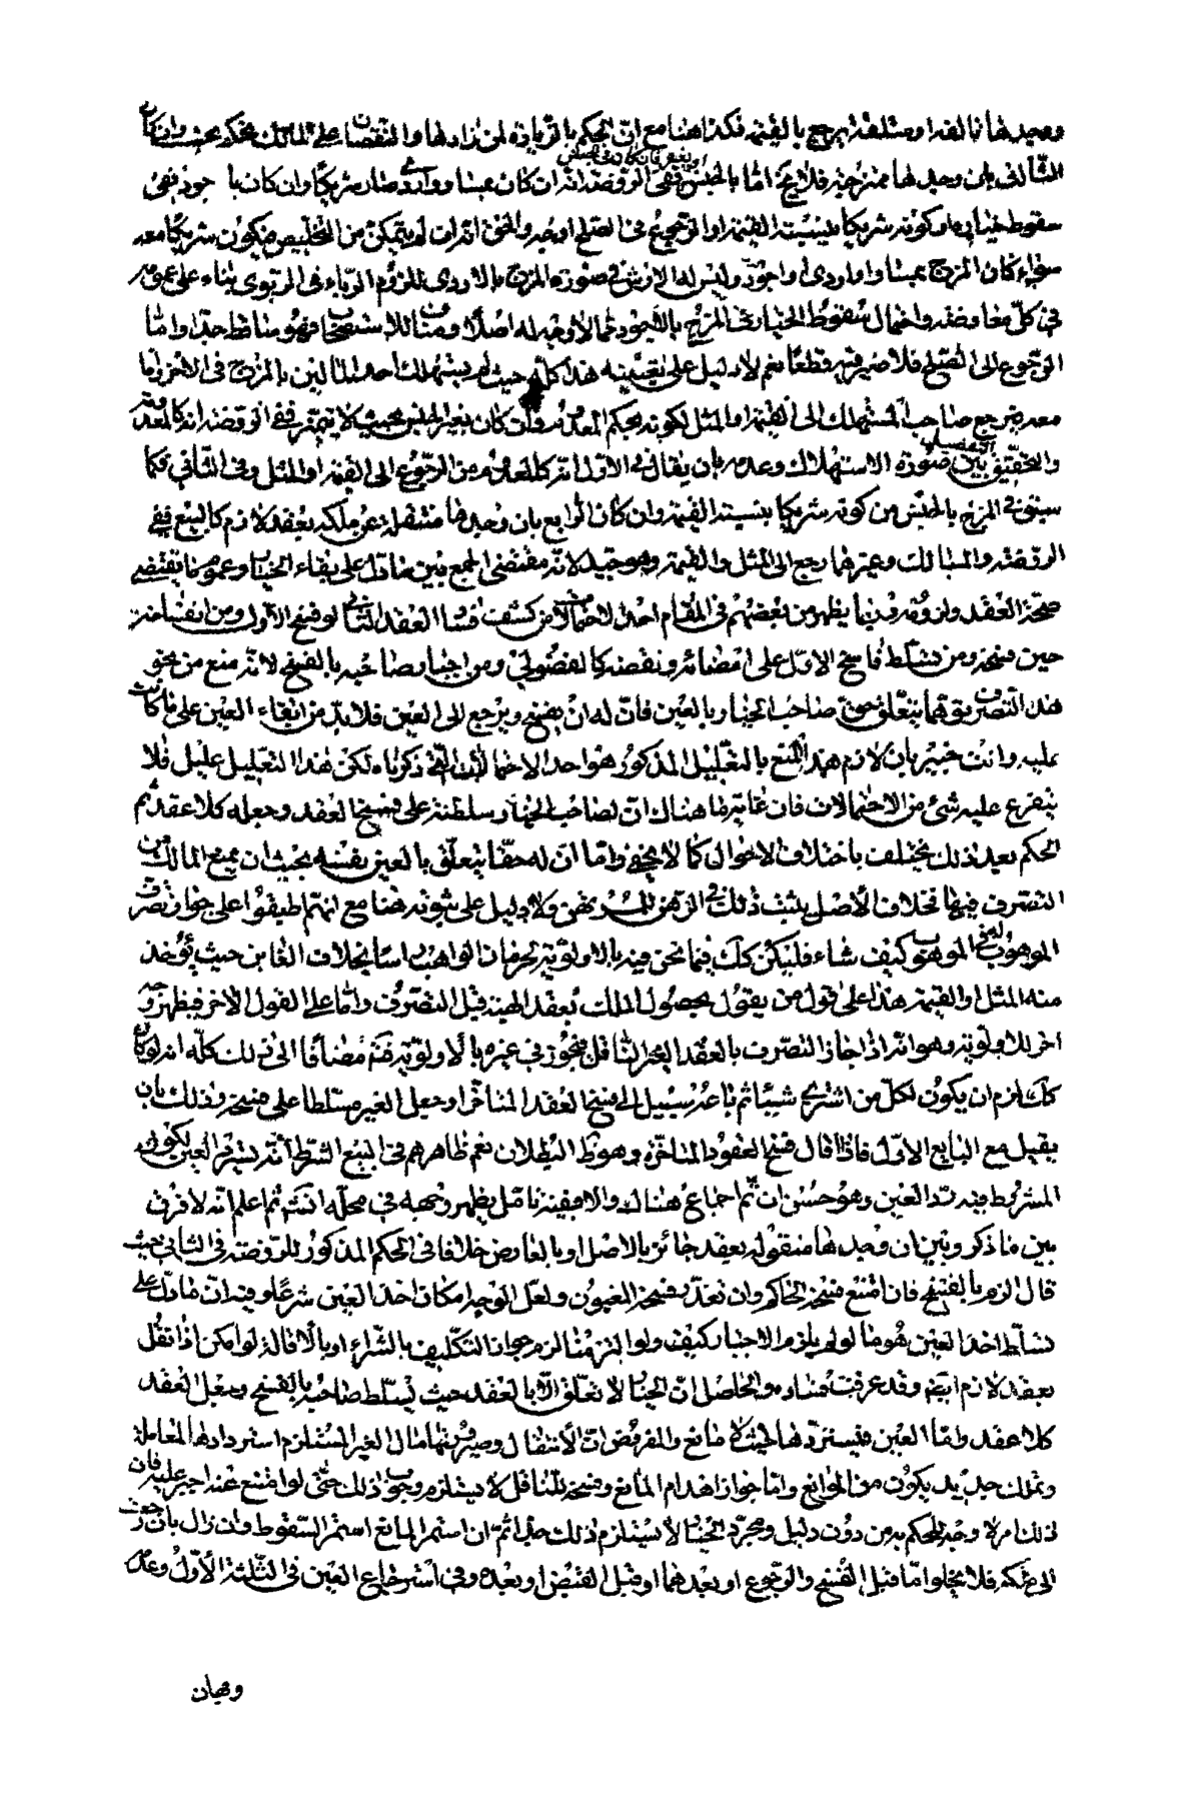 وجدها تالفة او متلفة يرجع بالقيمة فكذا هنا مع ان الحكم بالزيادة لمن زادها والنقصان على المالك محكم بحث وان كان
الثالث بان وجدها ممتزجة فلا يخ اما بالجنس ففى الروضة انه ان كان بمساو وأردى صار شريكا وان كان باجود ففى
او بغيره فان كان بالجنس
سقوط خياره او كونه شريكا بنسبة القيمة او الرجوع فى الصلح اوجه والحق انه ان لم يتمكن من التخليص فيكون شريكا معه
سواء كان المزج بمساو او اردى او اجود وليس له الارش فى صورة المزج بالاردى للزوم الرباء فى الربوى بناء على عمومه
فى كل معاوضة واحتمال سقوط الخيار فى المزج بالاجود مما لا وجه له اصلا ومناف للاستصحاب فهو ساقط جدا واما
الرجوع الى الصلح فلا ضير فيه قطعا نعم لا دليل على تعينه هذا كله حيث لم يستهلك احد المالين بالمزج فى الاخر واما
معه يرجع صاحب المستهلك الى القيمة او المثل لكونه بحكم المعدوم وان كان بغير الجنس بحيث لا يتميز ففى الروضة انه كالمعدوم
والتحقيق التفصيل بين صورة الاستهلاك وعدمه بان يقال فى الاول انه كالمعدوم من الرجوع الى القيمة او المثل وفى الثانى كما
سبق فى المزج بالجنس من كونه شريكا بنسبة القيمة وان كان الرابع بان وجدها منتقلة عن ملكه بعقد لازم كالبيع ففى
الروضة والمسالك وغيرهما رجع الى المثل والقيمة وهو جيد لانه مقتضى الجمع بين ما دل على بقاء الخيار وعموم ما يقتضى
صحة العقد ولزومه فما يظهر من بعضهم فى المقام احد الاحتمالات من كشف فساد العقد الثانى لو فسخ الاول ومن انفساخه
حين فسخه ومن تسلط فاسخ الاول على امضائه ونقضه كالفضولى ومن اجبار صاحبه بالفسخ لانه منع من نحو
هذا التصرف بهما يتعلق حق صاحب الخيار بالعين فان له ان يفسخ ويرجع الى العين فلا بد من ابقاء العين على ما كانت
عليه وانت خبير بان لازم هذا المنع بالتعليل المذكور هو احد الاحتمالات التى ذكرناه لكن هذا التعليل عليل فلا
يتفرع عليه شئ من الاحتمالات فان غاية ما هناك ان لصاحب الخيار سلطنة على فسخ العقد وجعله كلا عقد ثم
الحكم بعد ذلك يختلف باختلاف الاحوال كما لا يخفى واما ان له حقا يتعلق بالعين بنفسه بحيث ان يمنع المالك من
التصرف فيها فخلاف الاصل يثبت ذلك فى الرهن للمرتهن ولا دليل على ثبوته هنا مع انهم اطبقوا على جواز تصرف
الموهوب له فى الموهوب كيف شاء فليكن كك فيما نحن فيه بالاولوية لحرمان الواهب راسا بخلاف الغابن حيث يؤخذ
منه المثل او القيمة هذا على قول من يقول بحصول الملك بعقد الهبة قبل التصرف واما على القول الاخر فيظهر وجه
اخر للاولوية وهو انه اذا جاز التصرف بالعقد الغير الناقل فيجوز فى غيره بالاولوية فتم مضافا الى ذلك كله انه لو كان
كك لزم ان يكون لكل من اشترى شيئا ثم باعه سبيل الى فسخ العقد المتاخر او جعل الغير مسلطا على فسخه وذلك بان
يقيل مع البايع الاول فاذا اقال فسخ العقود المتاخرة وهو ظ البطلان نعم ظاهرهم فى البيع الشرط انه يشترط العين لكون
المشروط فيه رد العين وهو حسن ان تم اجماع هناك والا ففيه تامل يظهر وجهه فى محله انشء ثم اعلم انه لا فرق
بين ما ذكر وبين ان وجدها منقوله بعقد جائز بالاصل او بالعارض خلافا فى الحكم المذكور للروضة فى الثانى حيث
قال الزم بالفسخ فان امتنع فسخه الحاكم وان تعذر فسخه المغبون ولعل الوجه امكان اخذ العين شرعا وفيه ان ما دل على
تسلط اخذ العين هو ما لو لم يلزم الاجبار كيف ولو التزمنا لزم جواز التكليف بالشراء او بالاقالة لو امكن اذا نقل
بعقد لازم ايضا وقد عرفت فساده والحاصل ان الخيار لا تعلق له الا بالعقد حيث يسلط صاحبه بالفسخ وجعل العقد
كلا عقد واما العين فيستردها حيث لا مانع والمفروض ان الانتقال وصيرورتها مال الغير المستلزم استردادها المعاملة
وتملك جديد يكون من الموانع واما جواز اهدام المانع وفسخه للناقل لا يستلزم وجوب ذلك حتى لو امتنع عنه اجبر عليه فان
ذلك امر لا وجه للحكم به من دون دليل ومجرد الخيار لا يستلزم ذلك جدا ثم ان استمر المانع استمر السقوط وان زال بان رجعت
الى ملكه فلا يخلو اما قبل الفسخ والرجوع او بعدهما او قبل القبض او بعده وفى استرجاع العين فى الثلثة الاول وعدمه
وجهان